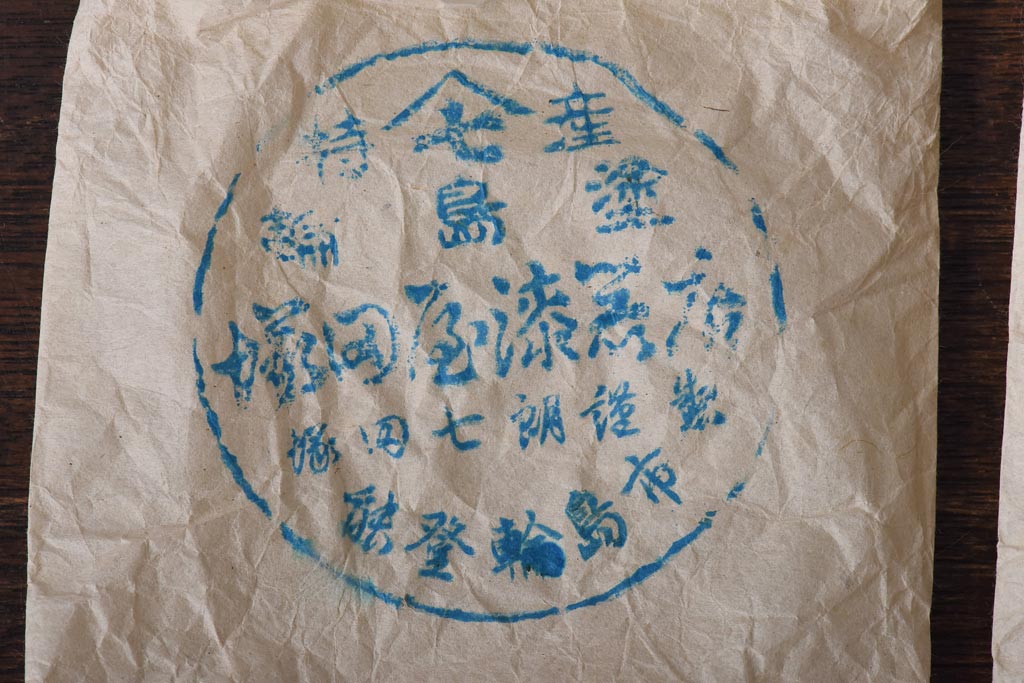 特七産
輪島塗
塚田屋漆器店
塚田七朗謹製
能登輪島市